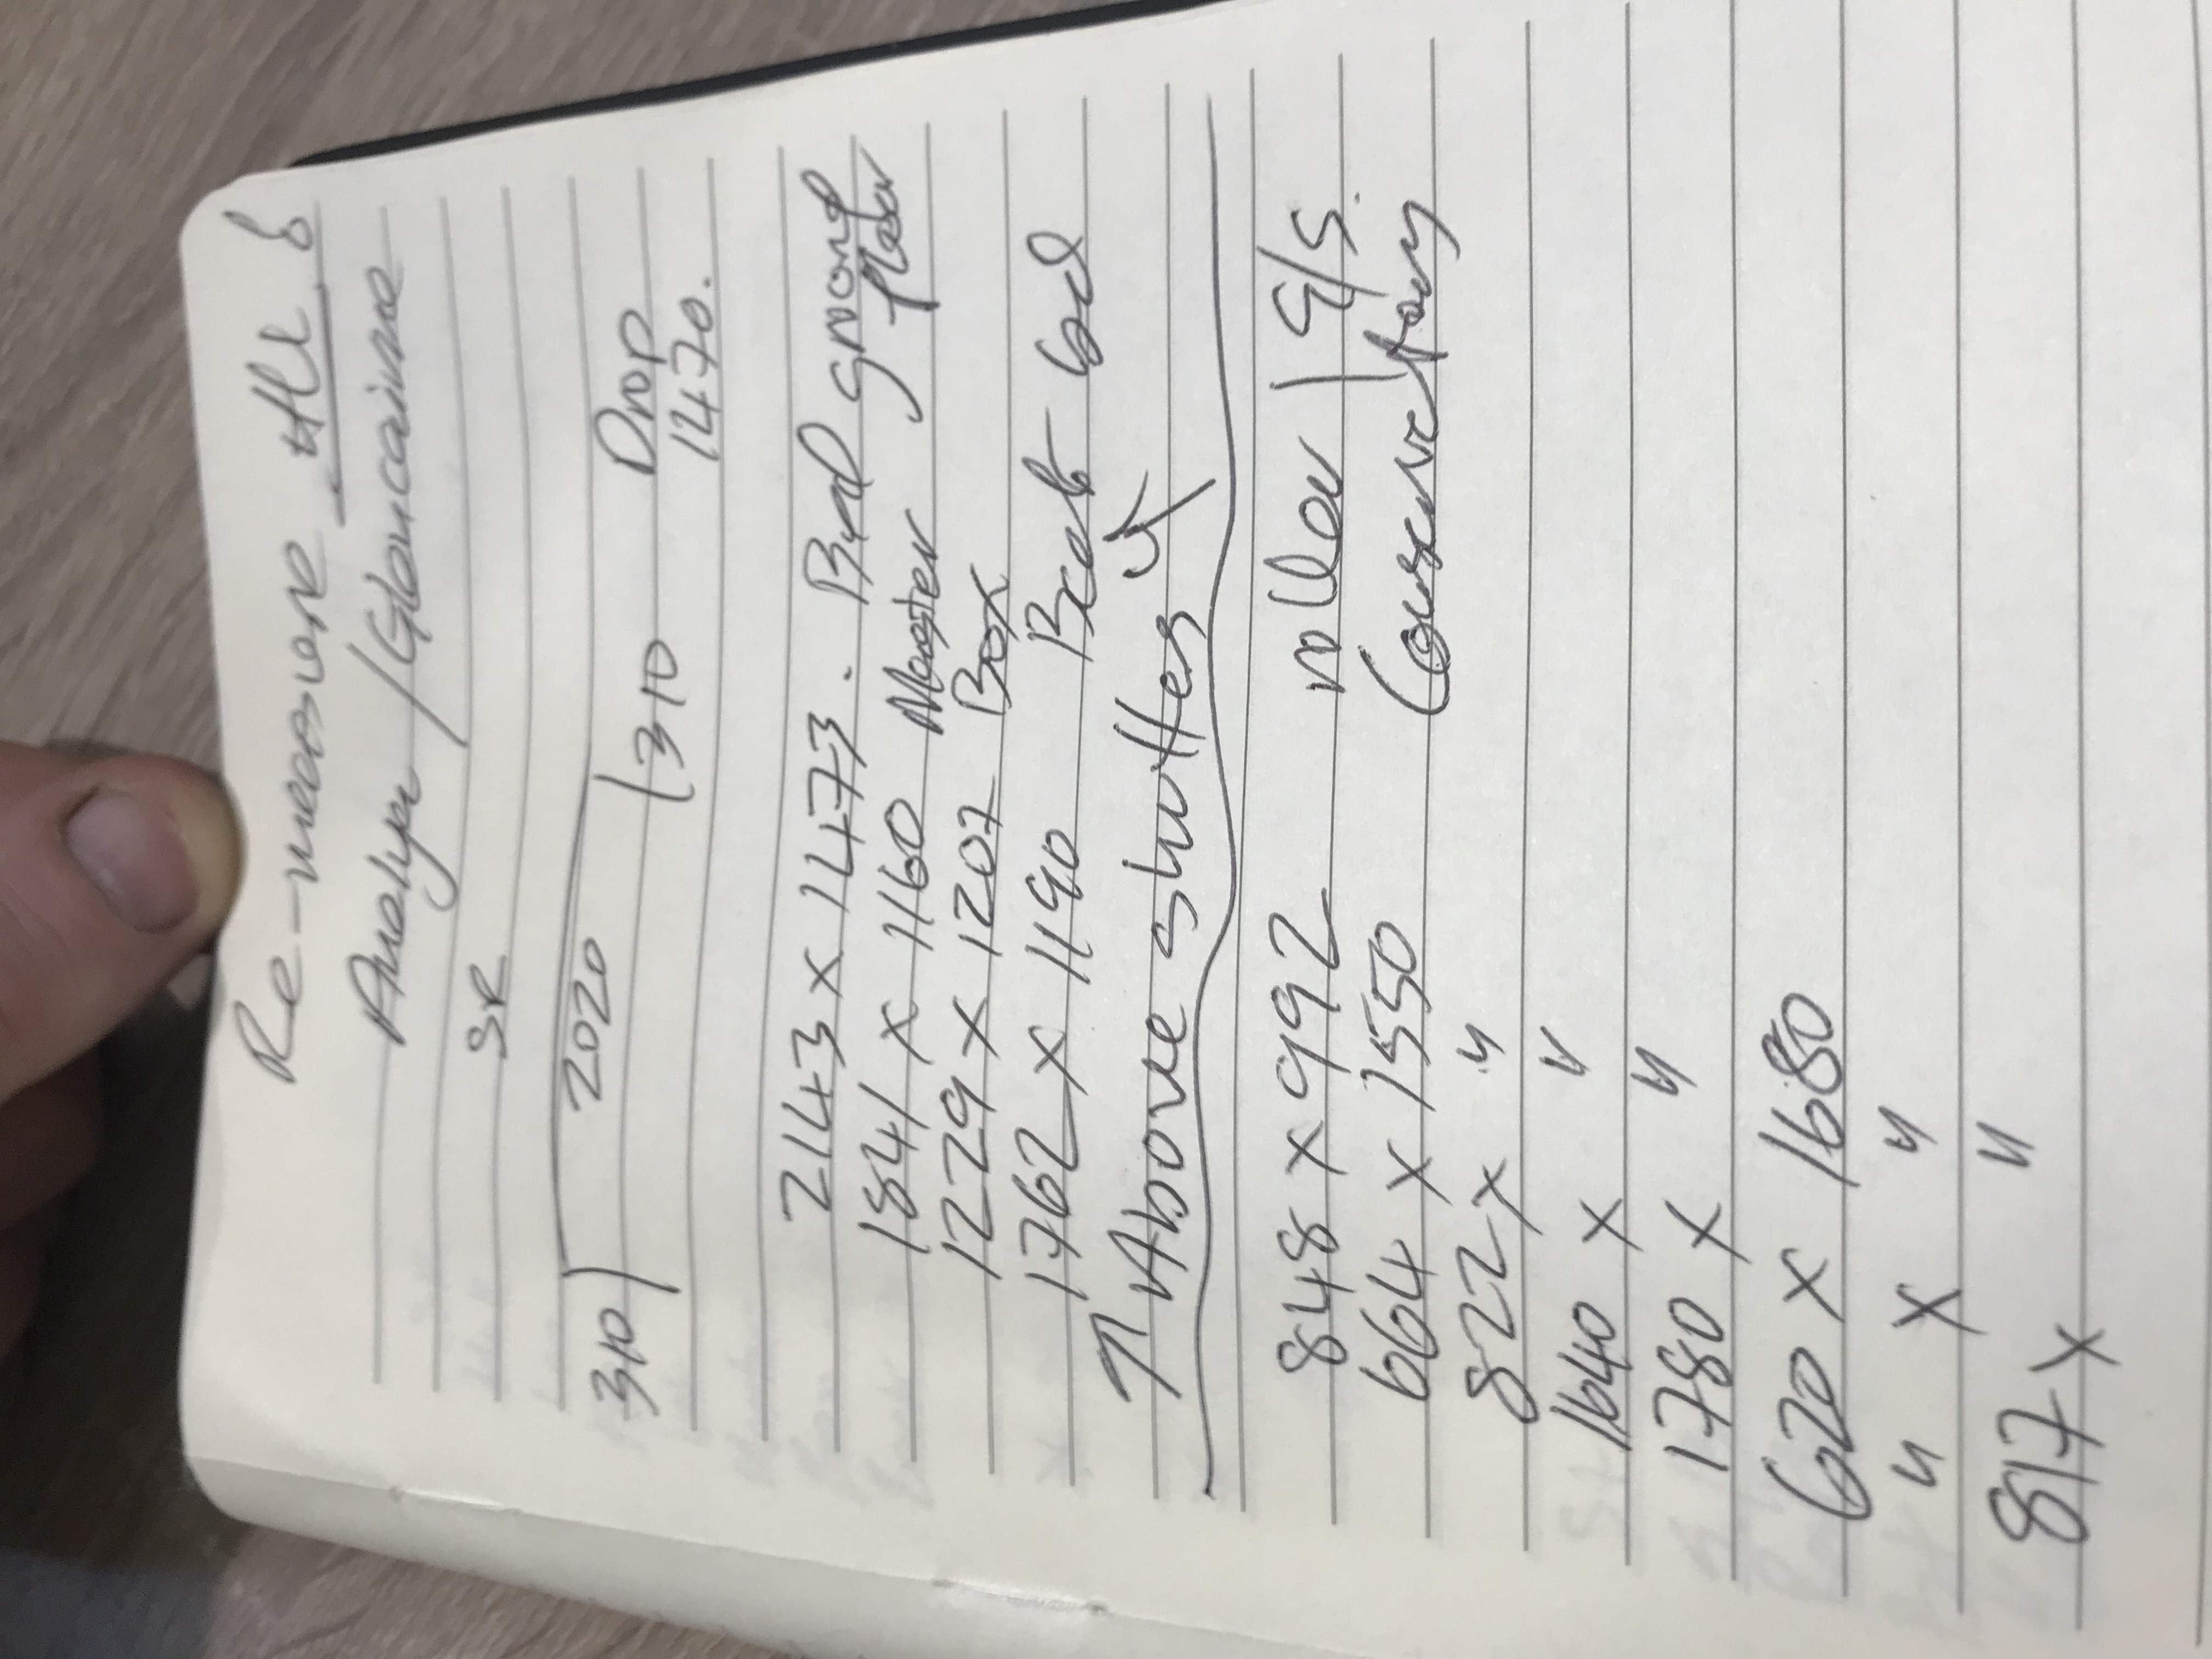 Re-measure
Analya / Gloucainre
SR
2020
310 310 Drop
1470.
2143 x 1473. Bed ground
floor
1841 x 1160 Master
1229 x 1207 Box
1762 x 1190 Back bed
Above shutters
848 x 992 roller E/S.
664 x 1550 Conservetory
822 x "
1640 x "
1780 x "
620 x 1680
" x "
817 x "